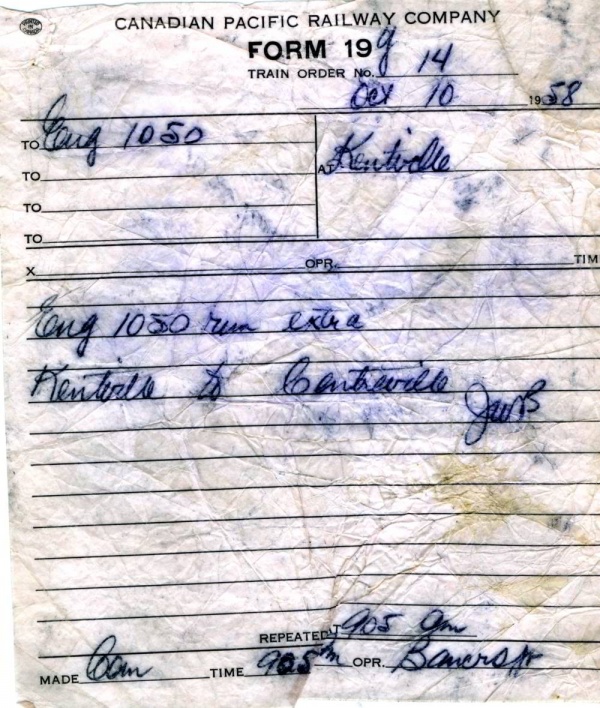 CANADIAN PACIFIC RAILWAY COMPANY
FORM 19 y
TRAIN ORDER No. 14
Oct 10 1958
TO Eng 1050 AT Kentville
TO
TO
TO
X OPR. TIM
Eng 1050 run extra
Kentville to Centreville
JWB
REPEATED AT 905 am
MADE Com TIME 905 am OPR. Bancroft